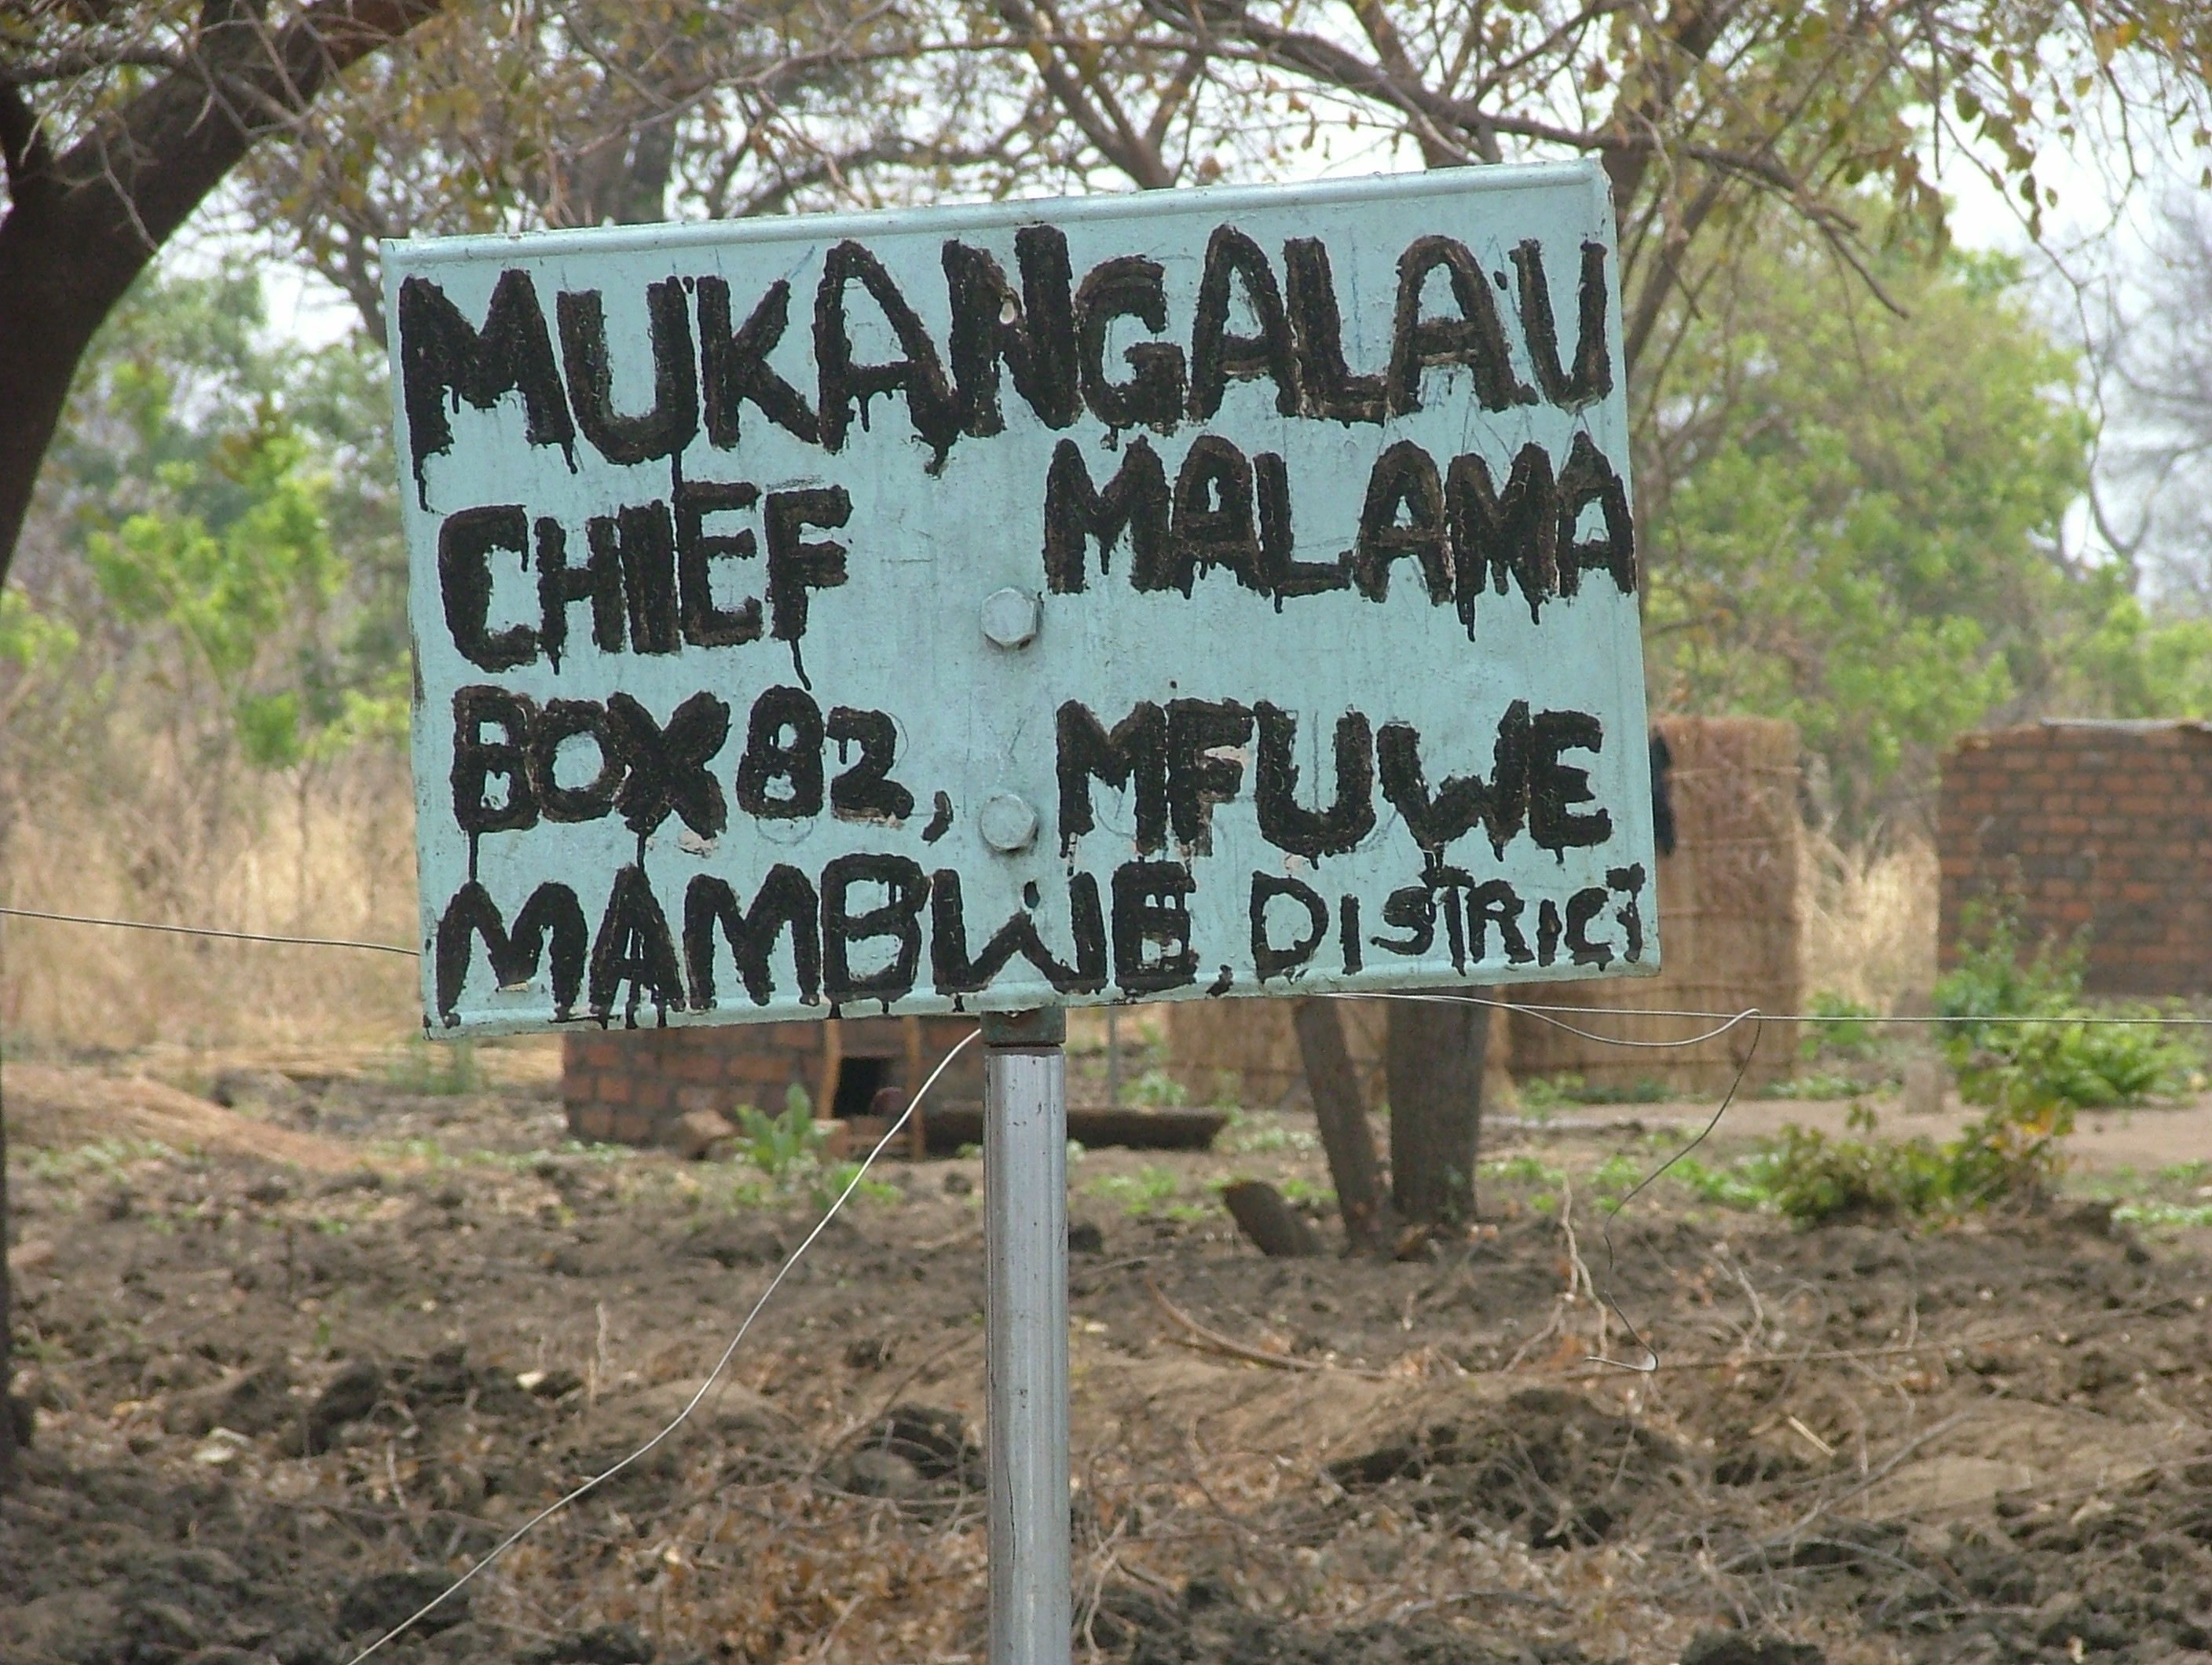 MUKANGALAU
CHIEF MALAMA
BOX 82, MFUWE
MAMBWE, DISTRICT